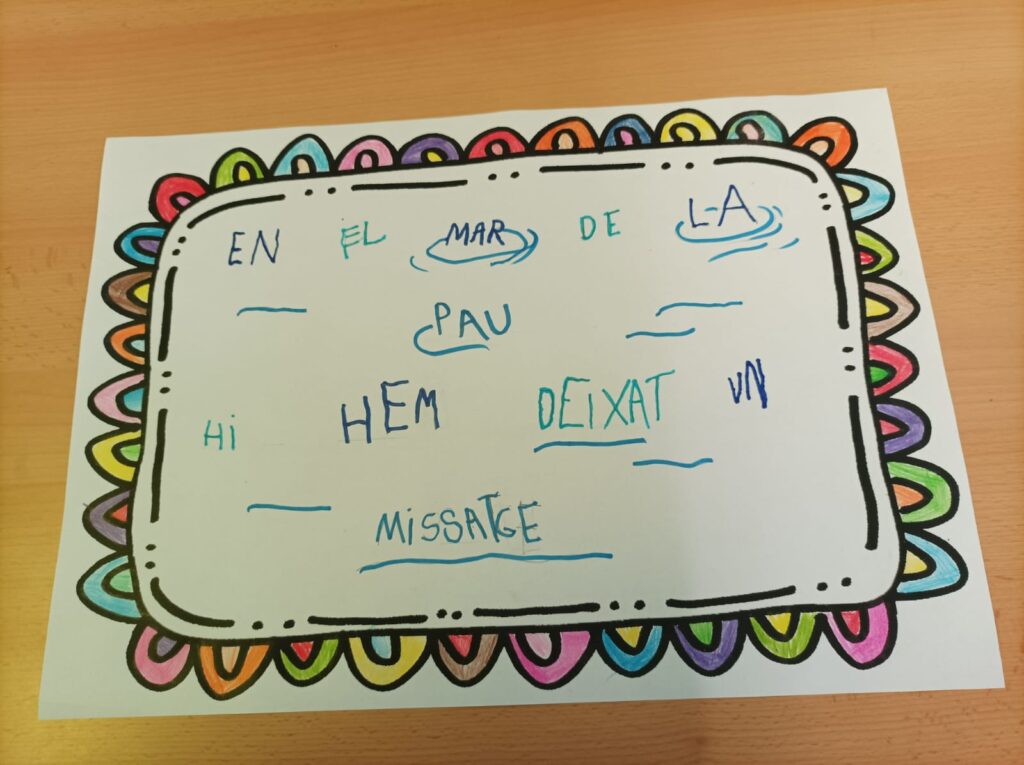 EN EL MAR DE LA
PAU
Hi HEM DEiXAT UN
MiSSATGE